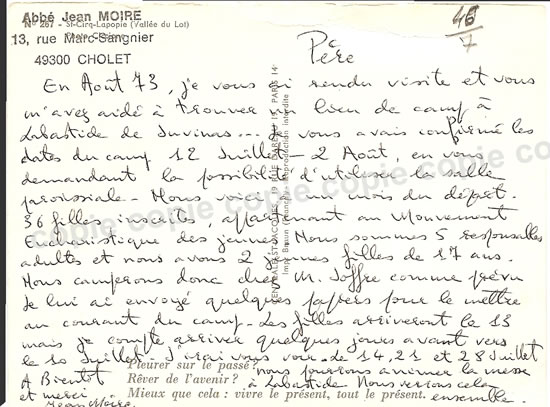 Abbé Jean MOIRE
N° 267 - St-Cirq-Lapopie (Vallée du Lot)
13, rue Marc-Sangnier
49300 CHOLET
Père
En Août 73, je vous ai rendu visite et vous
m'avez aidé à trouver un lieu de camp à
Labastide de Juvinas... Je vous avais confirmé les
dates du camp 12 Juillet - 2 Août, en vous
demandant la possibilité d'utiliser la salle
paroissiale - Nous voici à un mois du départ.
36 filles inscrites, appartenant au Mouvement
Eucharistique des jeunes. Nous sommes 5 responsables
adultes et nous avons 2 jeunes filles de 17 ans.
Nous camperons donc chez M. Joffre comme prévu
Je lui ai envoyé quelques papiers pour le mettre
au courant du camp - Les filles arriveront le 13
mais je compte arriver quelques jours avant vers
le 10 Juillet - J'irai vous voir - Le 14, 21 et 28 Juillet
nous pourrons animer la messe
à Labastide. Nous verrons cela
ensemble.
A Bientôt
et merci
Jean Moire
Pleurer sur le passé ?
Rêver de l'avenir ?
Mieux que cela : vivre le présent, tout le présent.
copie copie copie copie copie